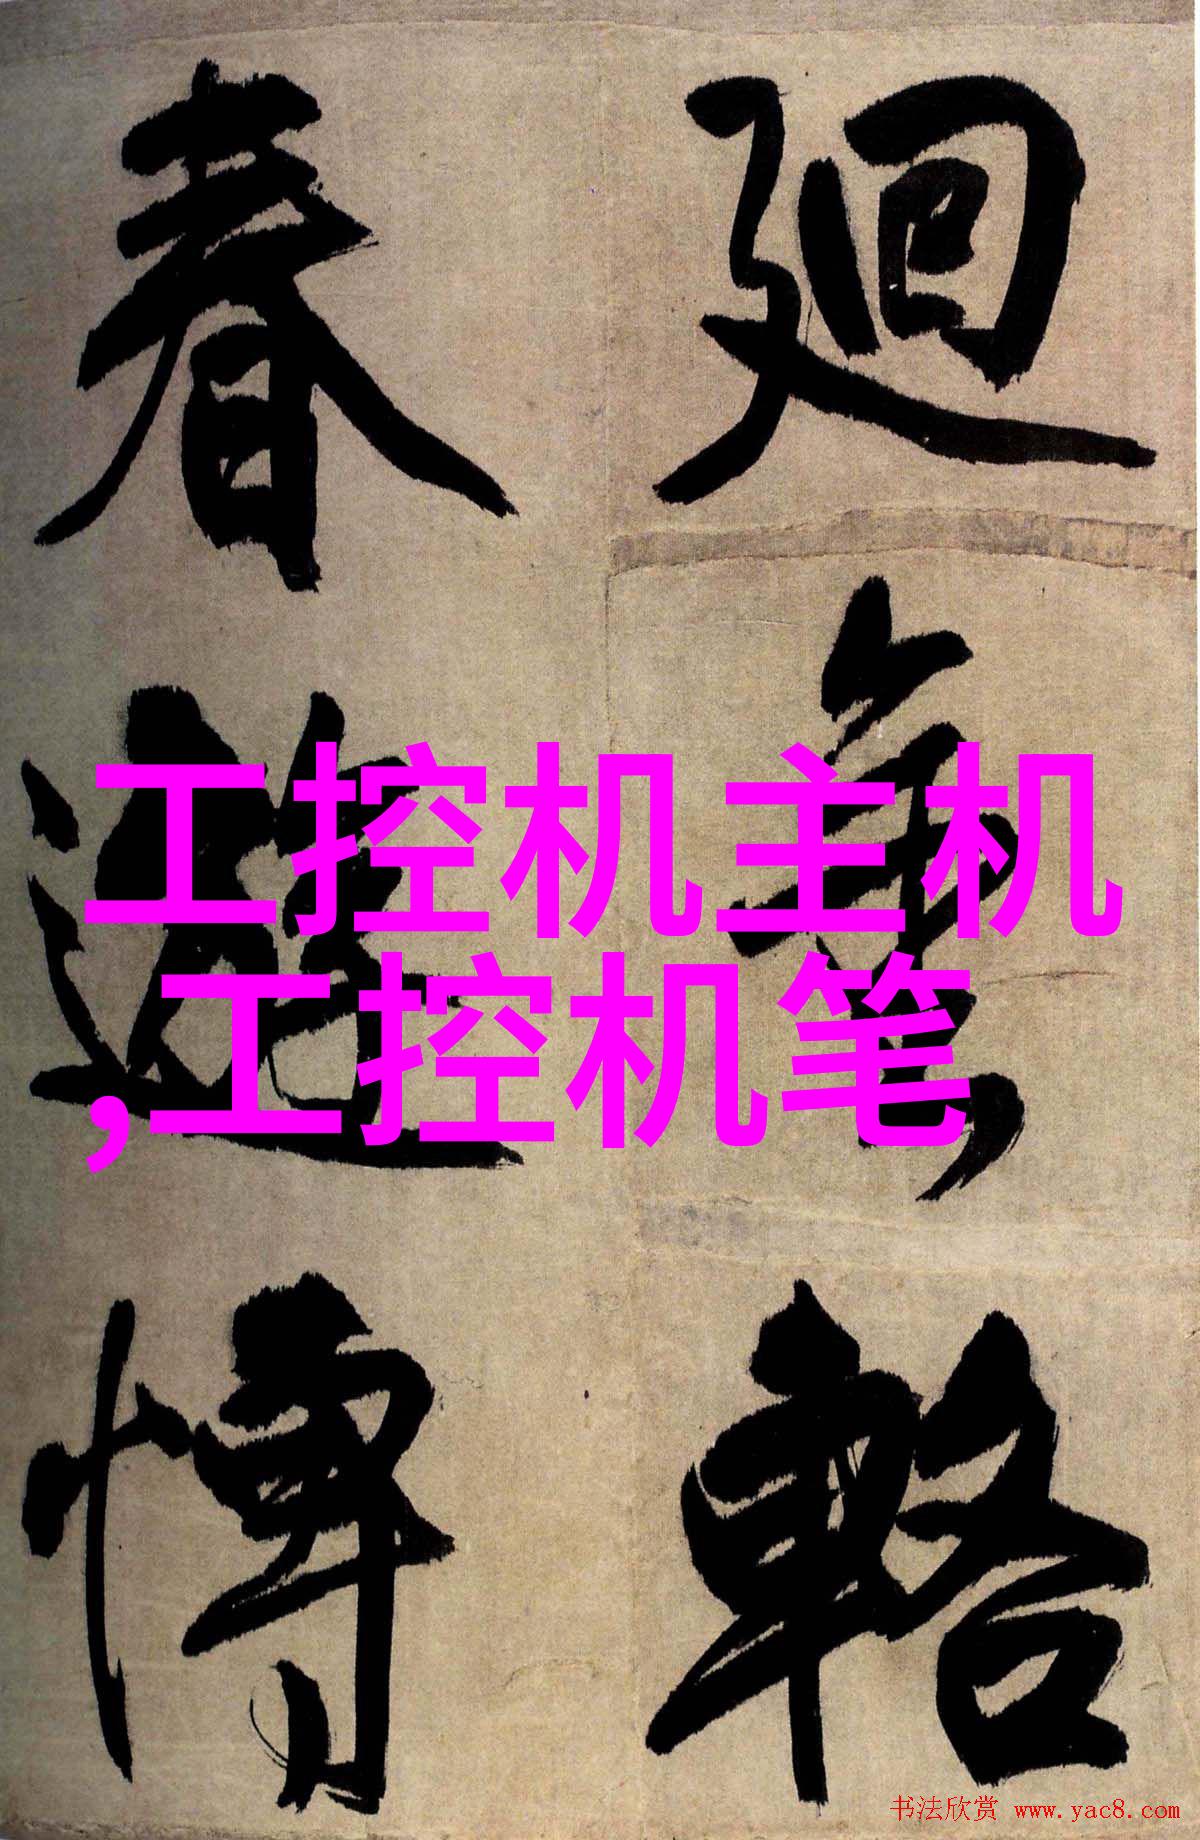 廻
輅
春
愽
工控机主机
,工控机笔
书法欣赏 www.yac8.com